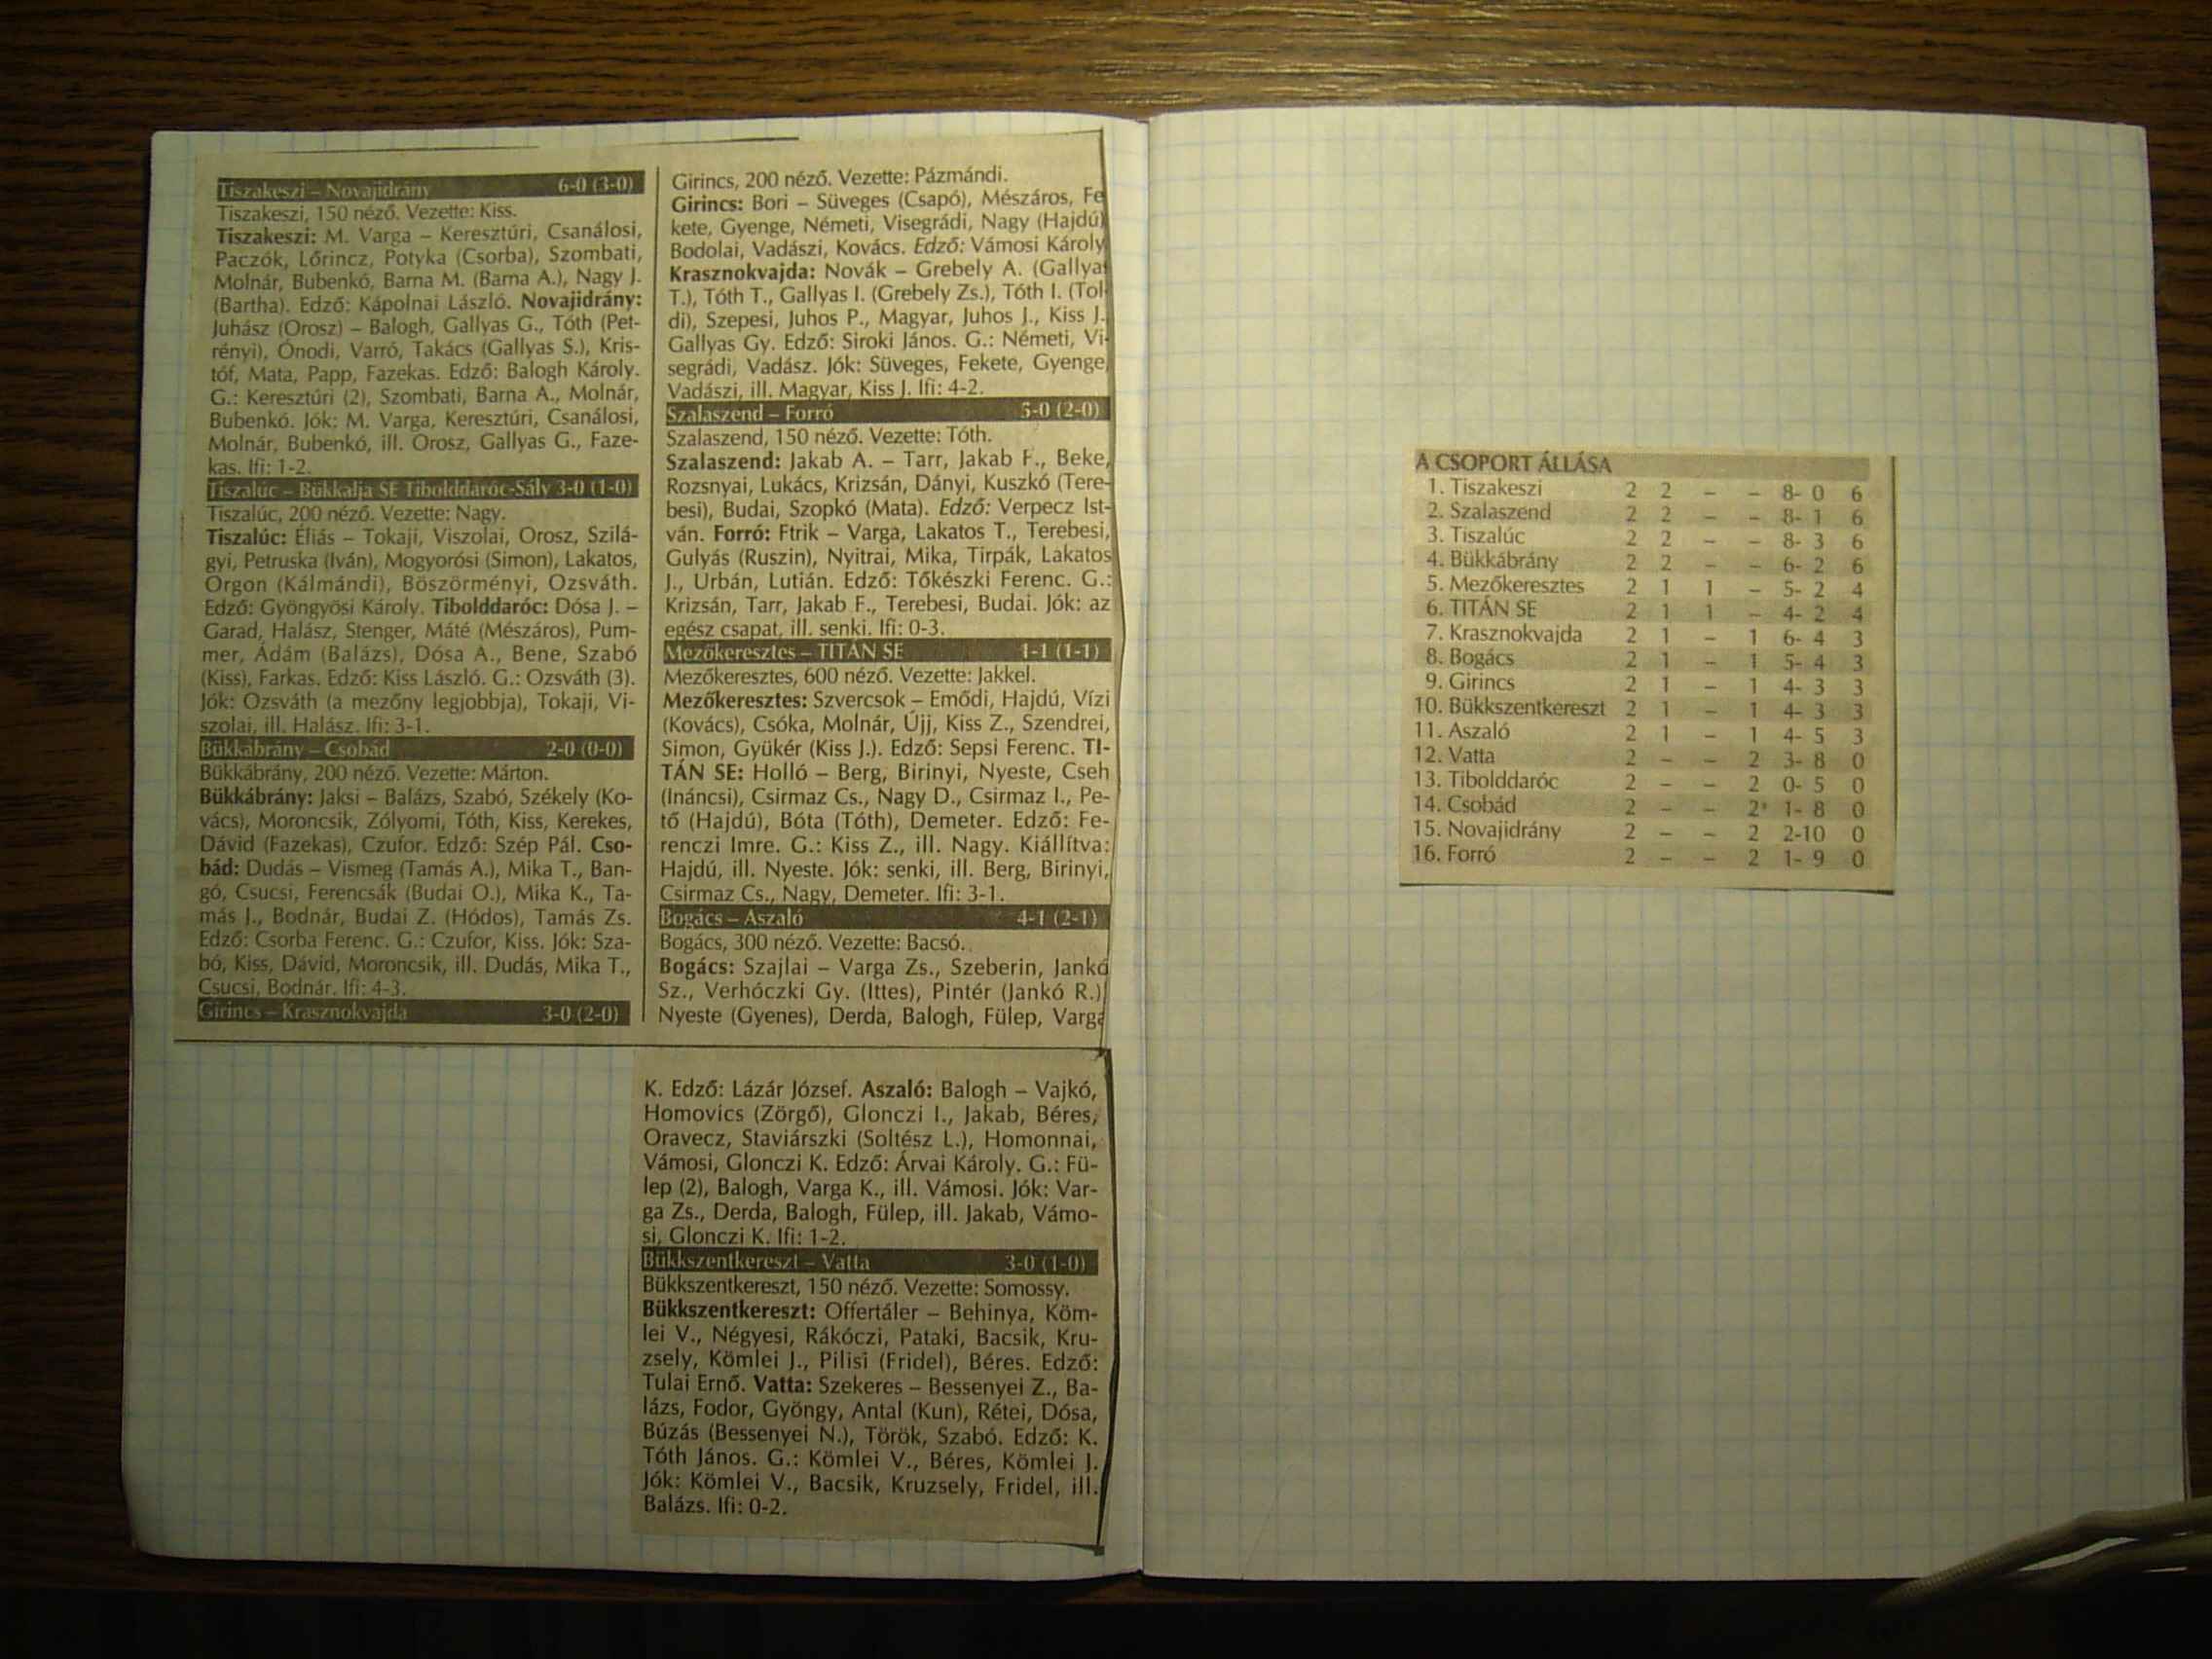 Tiszakeszi – Novajidrány 6-0 (3-0)
Tiszakeszi, 150 néző. Vezette: Kiss.
Tiszakeszi: M. Varga – Keresztúri, Csanálosi,
Paczók, Lőrincz, Potyka (Csorba), Szombati,
Molnár, Bubenkó, Barna M. (Barna A.), Nagy J.
(Bartha). Edző: Kápolnai László. Novajidrány:
Juhász (Orosz) – Balogh, Gallyas G., Tóth (Pet-
rényi), Ónodi, Varró, Takács (Gallyas S.), Kris-
tóf, Mata, Papp, Fazekas. Edző: Balogh Károly.
G.: Keresztúri (2), Szombati, Barna A., Molnár,
Bubenkó. Jók: M. Varga, Keresztúri, Csanálosi,
Molnár, Bubenkó, ill. Orosz, Gallyas G., Faze-
kas. Ifi: 1-2.
Tiszalúc – Bükkalja SE Tibolddaróc-Sály 3-0 (1-0)
Tiszalúc, 200 néző. Vezette: Nagy.
Tiszalúc: Éliás – Tokaji, Viszolai, Orosz, Szilá-
gyi, Petruska (Iván), Mogyorósi (Simon), Lakatos,
Orgon (Kálmándi), Böszörményi, Ozsváth.
Edző: Gyöngyösi Károly. Tibolddaróc: Dósa J. –
Garad, Halász, Stenger, Máté (Mészáros), Pum-
mer, Ádám (Balázs), Dósa A., Bene, Szabó
(Kiss), Farkas. Edző: Kiss László. G.: Ozsváth (3).
Jók: Ozsváth (a mezőny legjobbja), Tokaji, Vi-
szolai, ill. Halász. Ifi: 3-1.
Bükkábrány – Csobád 2-0 (0-0)
Bükkábrány, 200 néző. Vezette: Márton.
Bükkábrány: Jaksi – Balázs, Szabó, Székely (Ko-
vács), Moroncsik, Zólyomi, Tóth, Kiss, Kerekes,
Dávid (Fazekas), Czufor. Edző: Szép Pál. Cso-
bád: Dudás – Vismeg (Tamás A.), Mika T., Ban-
gó, Csucsi, Ferencsák (Budai O.), Mika K., Ta-
más J., Bodnár, Budai Z. (Hódos), Tamás Zs.
Edző: Csorba Ferenc. G.: Czufor, Kiss. Jók: Sza-
bó, Kiss, Dávid, Moroncsik, ill. Dudás, Mika T.,
Csucsi, Bodnár. Ifi: 4-3.
Girincs – Krasznokvajda 3-0 (2-0)
Girincs, 200 néző. Vezette: Pázmándi.
Girincs: Bori – Süveges (Csapó), Mészáros, Fe
kete, Gyenge, Németi, Visegrádi, Nagy (Hajdú)
Bodolai, Vadászi, Kovács. Edző: Vámosi Károly
Krasznokvajda: Novák – Grebely A. (Gallyas
T.), Tóth T., Gallyas I. (Grebely Zs.), Tóth I. (Tol-
di), Szepesi, Juhos P., Magyar, Juhos J., Kiss J.,
Gallyas Gy. Edző: Siroki János. G.: Németi, Vi-
segrádi, Vadász. Jók: Süveges, Fekete, Gyenge,
Vadászi, ill. Magyar, Kiss J. Ifi: 4-2.
Szalaszend – Forró 5-0 (2-0)
Szalaszend, 150 néző. Vezette: Tóth.
Szalaszend: Jakab A. – Tarr, Jakab F., Beke,
Rozsnyai, Lukács, Krizsán, Dányi, Kuszkó (Tere-
besi), Budai, Szopkó (Mata). Edző: Verpecz Ist-
ván. Forró: Ftrik – Varga, Lakatos T., Terebesi,
Gulyás (Ruszin), Nyitrai, Mika, Tirpák, Lakatos
J., Urbán, Lutián. Edző: Tőkészki Ferenc. G.:
Krizsán, Tarr, Jakab F., Terebesi, Budai. Jók: az
egész csapat, ill. senki. Ifi: 0-3.
Mezőkeresztes – TITÁN SE 1-1 (1-1)
Mezőkeresztes, 600 néző. Vezette: Jakkel.
Mezőkeresztes: Szvercsok – Emődi, Hajdú, Vízi
(Kovács), Csóka, Molnár, Újj, Kiss Z., Szendrei,
Simon, Gyükér (Kiss J.). Edző: Sepsi Ferenc. TI-
TÁN SE: Holló – Berg, Birinyi, Nyeste, Cseh
(Ináncsi), Csirmaz Cs., Nagy D., Csirmaz I., Pe-
tő (Hajdú), Bóta (Tóth), Demeter. Edző: Fe-
renczi Imre. G.: Kiss Z., ill. Nagy. Kiállítva:
Hajdú, ill. Nyeste. Jók: senki, ill. Berg, Birinyi,
Csirmaz Cs., Nagy, Demeter. Ifi: 3-1.
Bogács – Aszaló 4-1 (2-1)
Bogács, 300 néző. Vezette: Bacsó.
Bogács: Szajlai – Varga Zs., Szeberin, Jankó
Sz., Verhóczki Gy. (Ittes), Pintér (Jankó R.)
Nyeste (Gyenes), Derda, Balogh, Fülep, Varga
K. Edző: Lázár József. Aszaló: Balogh – Vajkó,
Homovics (Zörgő), Glonczi I., Jakab, Béres,
Oravecz, Staviárszki (Soltész L.), Homonnai,
Vámosi, Glonczi K. Edző: Árvai Károly. G.: Fü-
lep (2), Balogh, Varga K., ill. Vámosi. Jók: Var-
ga Zs., Derda, Balogh, Fülep, ill. Jakab, Vámo-
si, Glonczi K. Ifi: 1-2.
Bükkszentkereszt – Vatta 3-0 (1-0)
Bükkszentkereszt, 150 néző. Vezette: Somossy.
Bükkszentkereszt: Offertáler – Behinya, Köm-
lei V., Négyesi, Rákóczi, Pataki, Bacsik, Kru-
zsely, Kömlei J., Pilisi (Fridel), Béres. Edző:
Tulai Ernő. Vatta: Szekeres – Bessenyei Z., Ba-
lázs, Fodor, Gyöngy, Antal (Kun), Rétei, Dósa,
Búzás (Bessenyei N.), Török, Szabó. Edző: K.
Tóth János. G.: Kömlei V., Béres, Kömlei J.
Jók: Kömlei V., Bacsik, Kruzsely, Fridel, ill.
Balázs. Ifi: 0-2.
A CSOPORT ÁLLÁSA
1. Tiszakeszi 2 2 – – 8- 0 6
2. Szalaszend 2 2 – – 8- 1 6
3. Tiszalúc 2 2 – – 8- 3 6
4. Bükkábrány 2 2 – – 6- 2 6
5. Mezőkeresztes 2 1 1 – 5- 2 4
6. TITÁN SE 2 1 1 – 4- 2 4
7. Krasznokvajda 2 1 – 1 6- 4 3
8. Bogács 2 1 – 1 5- 4 3
9. Girincs 2 1 – 1 4- 3 3
10. Bükkszentkereszt 2 1 – 1 4- 3 3
11. Aszaló 2 1 – 1 4- 5 3
12. Vatta 2 – – 2 3- 8 0
13. Tibolddaróc 2 – – 2 0- 5 0
14. Csobád 2 – – 2 1- 8 0
15. Novajidrány 2 – – 2 2-10 0
16. Forró 2 – – 2 1- 9 0